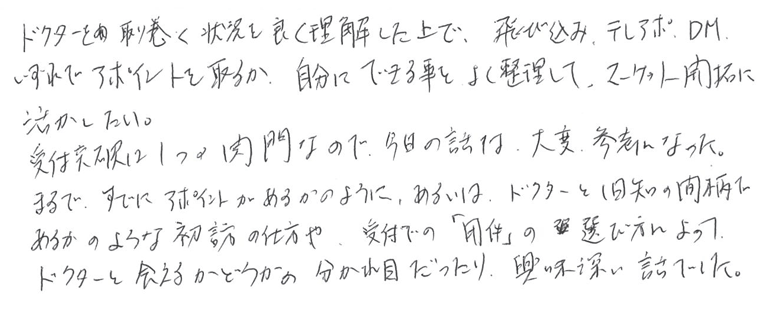 ドクターを取り巻く状況を良く理解した上で、飛び込み、テレアポ、DM、
いずれでアポイントを取るか、自分にできる事をよく整理して、マーケット開拓に
活かしたい。
受付突破は1つの関門なので、今日の話は、大変、参考になった。
まるで、すでにアポイントがあるかのように、あるいは、ドクターと旧知の間柄で
あるかのような初訪の仕方や、受付での「用件」の選び方によって、
ドクターと会えるかどうかの分かれ目だったり、興味深い話でした。